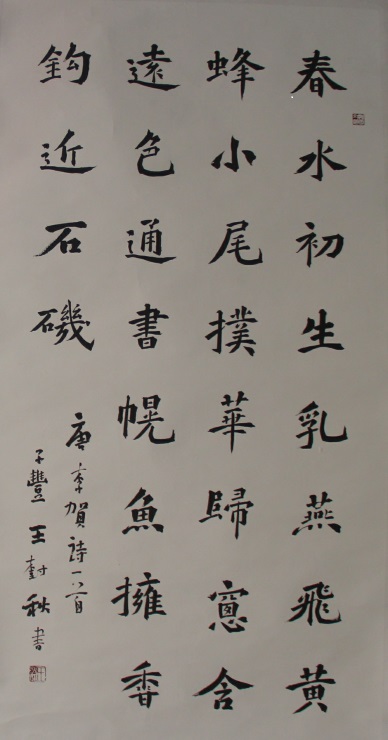 春水初生乳燕飛黃
蜂小尾撲華歸窻含
遠色通書幌魚擁香
鈎近石磯
唐李賀詩一首
子豐王秋書